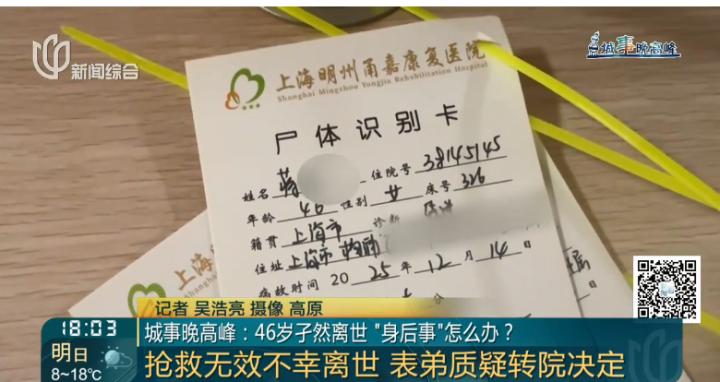 新闻综合
城事晚高峰
上海明州甬嘉康复医院
Shanghai Mingzhou Yongjia Rehabilitation Hospital
尸体识别卡
姓名 蒋 住院号 38145145
年龄 46 性别 女 床号 326
籍贯 上海市 诊断
住址 上海市
病故时间 2025 年 12 月 14 日
记者 吴浩亮 摄像 高原
18:03
城事晚高峰:46岁孑然离世 "身后事"怎么办?
明日
8~18℃
抢救无效不幸离世 表弟质疑转院决定